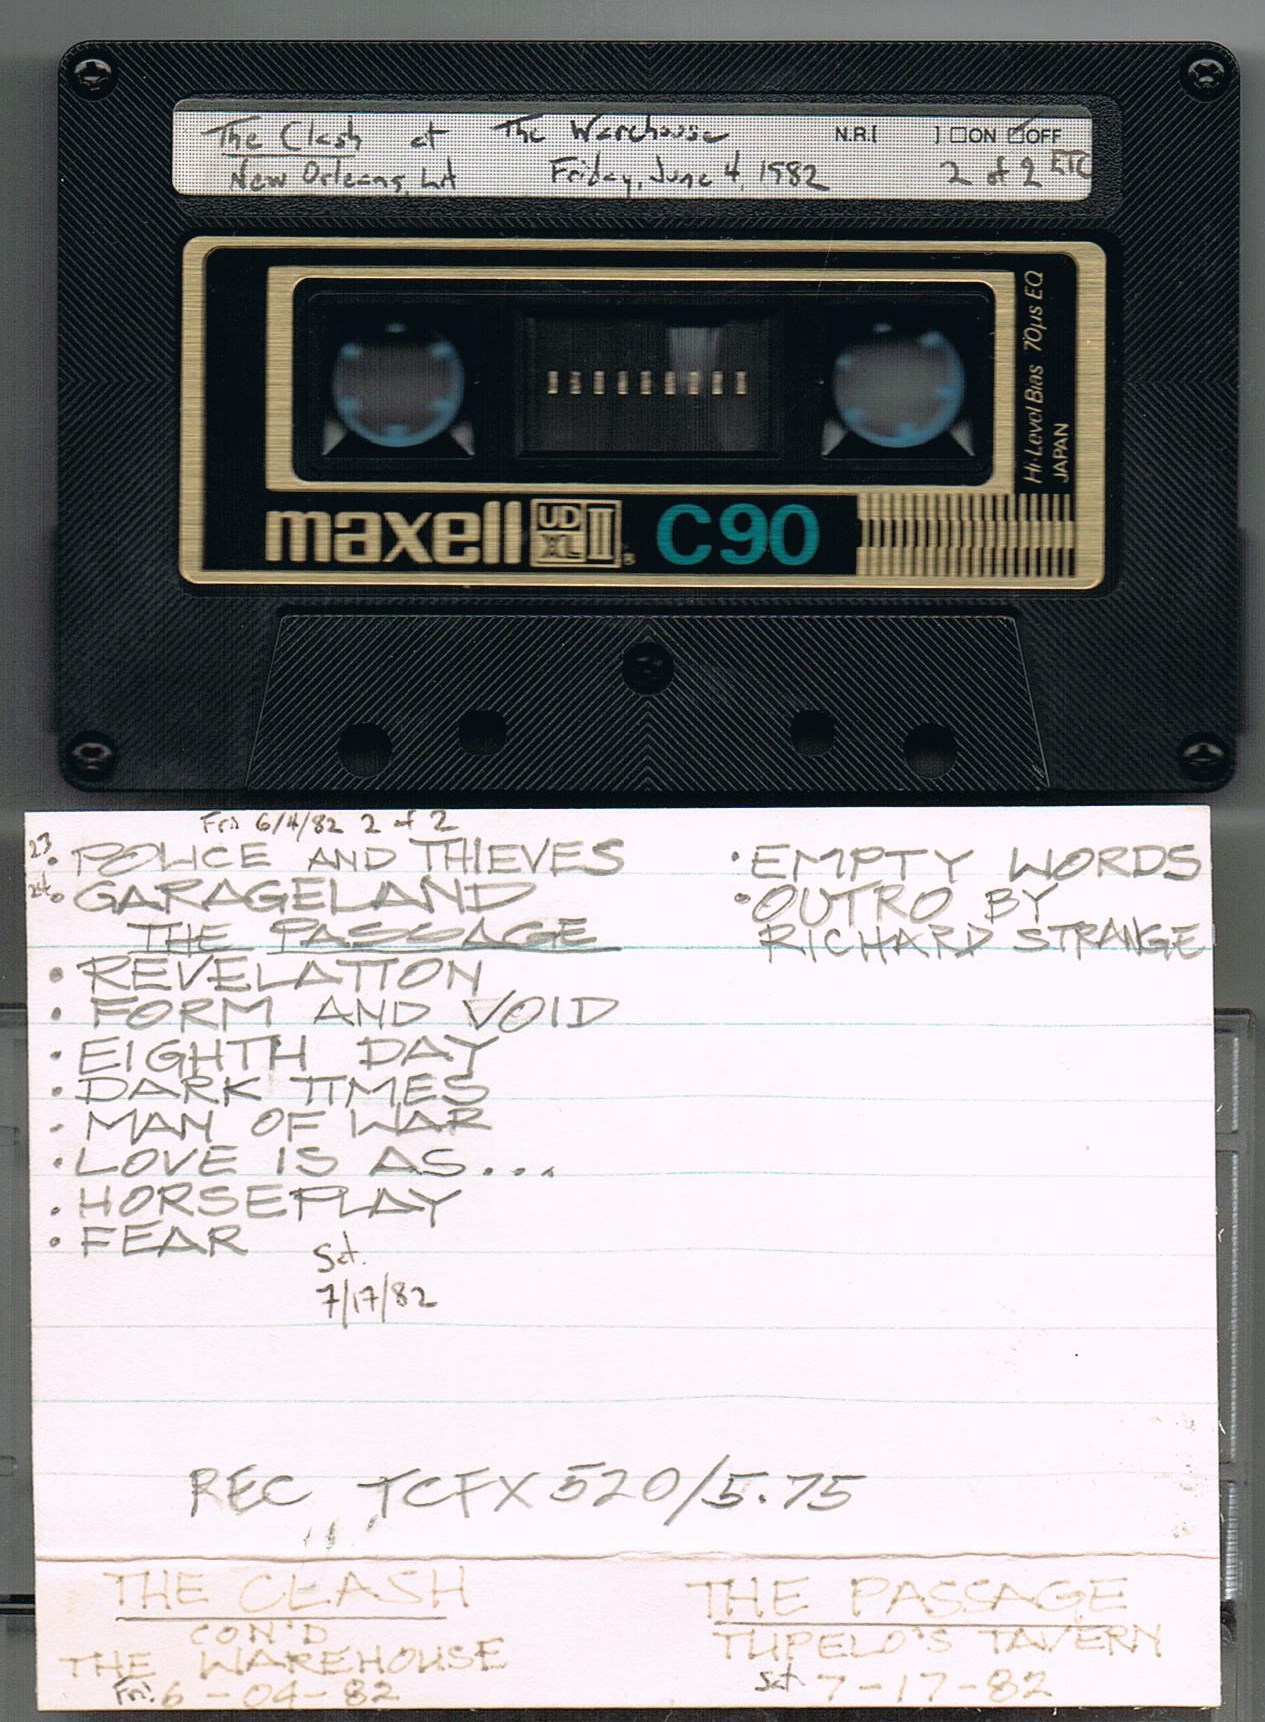 The Clash at The Warehouse N.R.[ ] ☐ON ☑OFF
New Orleans, LA Friday, June 4, 1982 2 of 2 ETC
Hi-Level Bias 70µs EQ
JAPAN
maxell UD XL II® C90
Fri 6/4/82 2 of 2
23. POLICE AND THIEVES
24. GARAGELAND
THE PASSAGE
• REVELATION
• FORM AND VOID
• EIGHTH DAY
• DARK TIMES
• MAN OF WAR
• LOVE IS AS...
• HORSEPLAY
• FEAR
Sat.
7/17/82
• EMPTY WORDS
• OUTRO BY
RICHARD STRANGE
REC TCFX520/5.75
THE CLASH
CON'D
THE WAREHOUSE
Fri. 6-04-82
THE PASSAGE
TUPELO'S TAVERN
Sat. 7-17-82